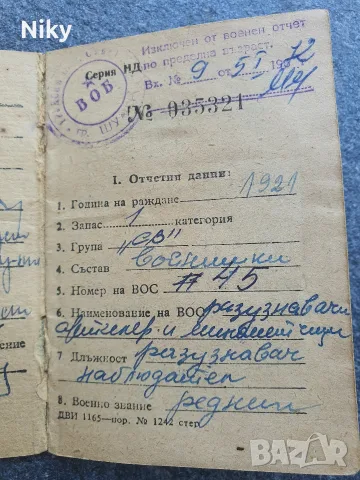 Niky
Изключен от военен отчет
по пределна възраст.
Серия НД
Вх. № 9 от 5 I 1972
ВОБ
№ 035321
I. Отчетни данни:
1. Година на раждане 1921
2. Запас 1 категория
3. Група "СВ"
4. Състав войнишки
5. Номер на ВОС А 45
6. Наименование на ВОС разузнавачи
артилер. и
7 Длъжност разузнавач
наблюдател
8. Военно звание редник
ДВИ 1165—пор. № 1242 стер
BAZAR